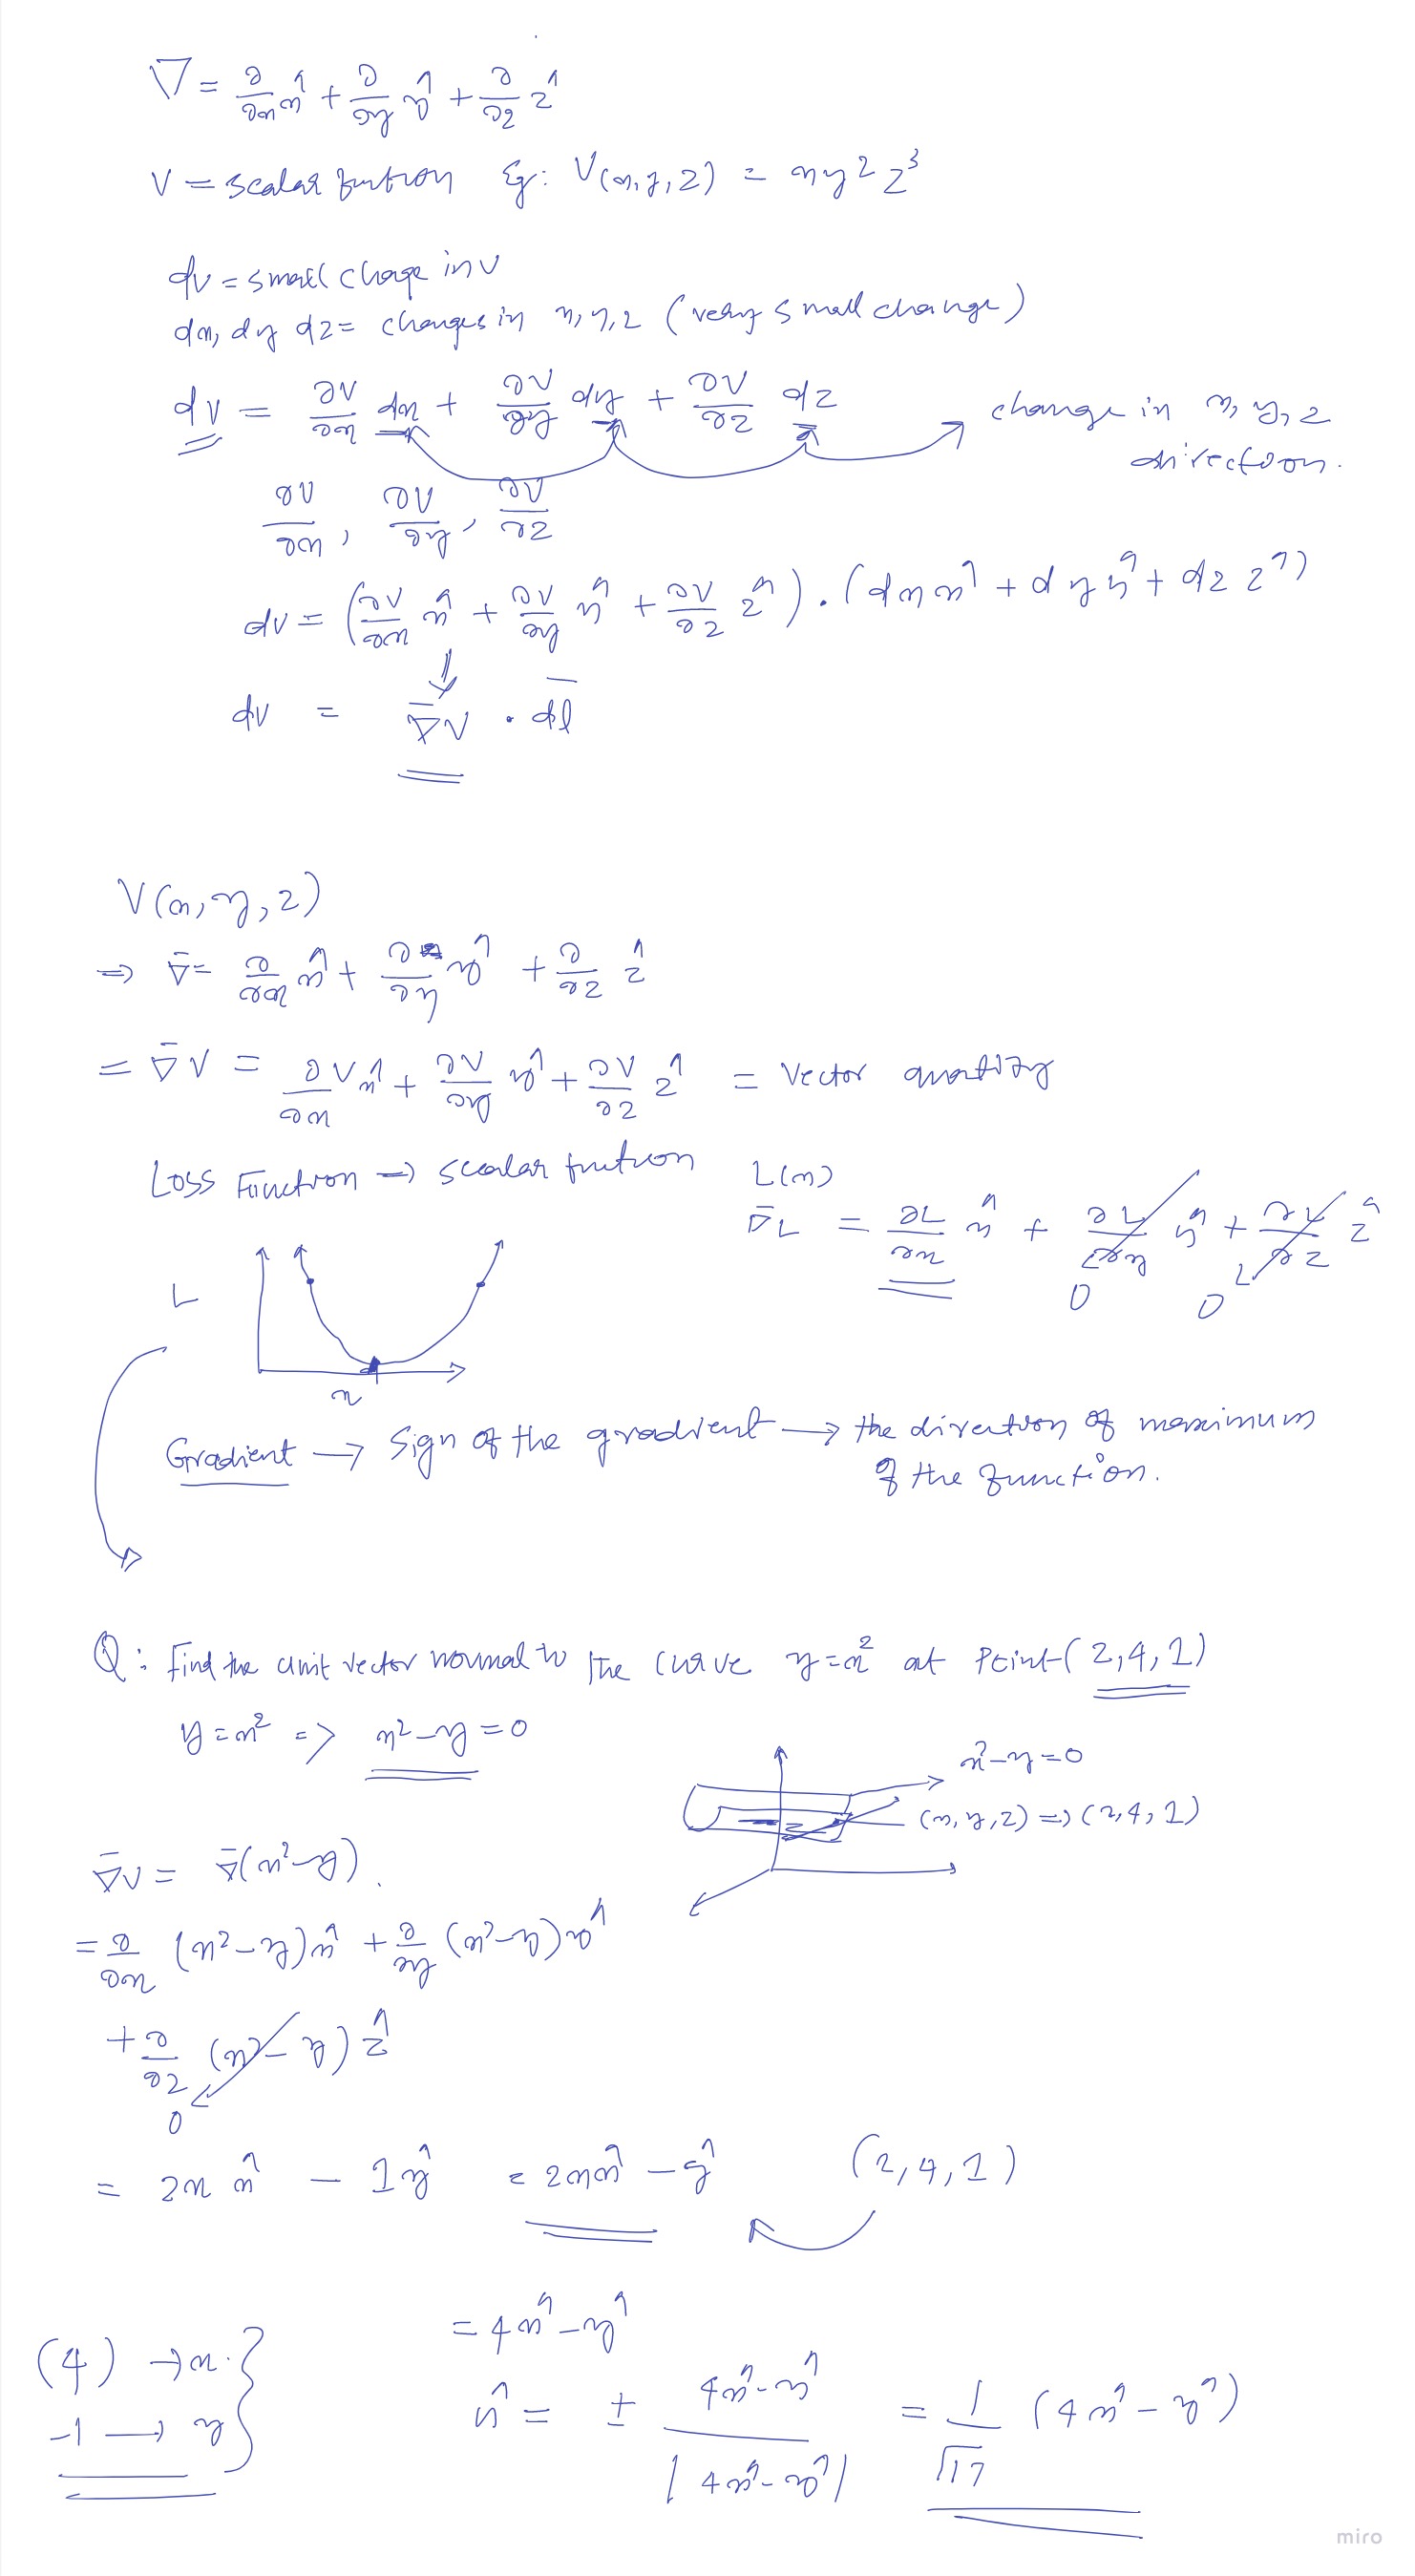 ∇ = ∂/∂x x̂ + ∂/∂y ŷ + ∂/∂z ẑ
V = scalar funtion Eg: V(x,y,z) = xy²z³
dv = small chage in v
dx, dy dz = changes in x,y,z (very small change)
dv = ∂V/∂x dx + ∂V/∂y dy + ∂V/∂z dz
change in x, y, z
direction.
∂V/∂x, ∂V/∂y, ∂V/∂z
dv = (∂V/∂x x̂ + ∂V/∂y ŷ + ∂V/∂z ẑ) . (dx x̂ + dy ŷ + dz ẑ)
dv = ∇̄V . dl̄
V(x,y,z)
⇒ ∇̄ = ∂/∂x x̂ + ∂/∂y ŷ + ∂/∂z ẑ
= ∇̄V = ∂V/∂x x̂ + ∂V/∂y ŷ + ∂V/∂z ẑ = Vector quantity
Loss Function → scalar funtion L(x)
∇̄L = ∂L/∂x x̂ + ∂L/∂y ŷ + ∂L/∂z ẑ
0 0
L
x
Gradient → Sign of the gradient → the direction of maximum
of the function.
Q: Find the unit vector normal to the curve y=x² at Point (2,4,1)
y = x² => x²-y = 0
x²-y=0
(x,y,z) => (2,4,1)
∇̄V = ∇̄(x²-y).
= ∂/∂x (x²-y)x̂ + ∂/∂y (x²-y)ŷ
+ ∂/∂z (x²-y) ẑ
0
= 2x x̂ - 1ŷ = 2xx̂ - ŷ (2,4,1)
= 4x̂ - ŷ
(4) → x.
-1 → y
n̂ = ± 4x̂-ŷ / |4x̂-ŷ| = 1/√17 (4x̂ - ŷ)
miro